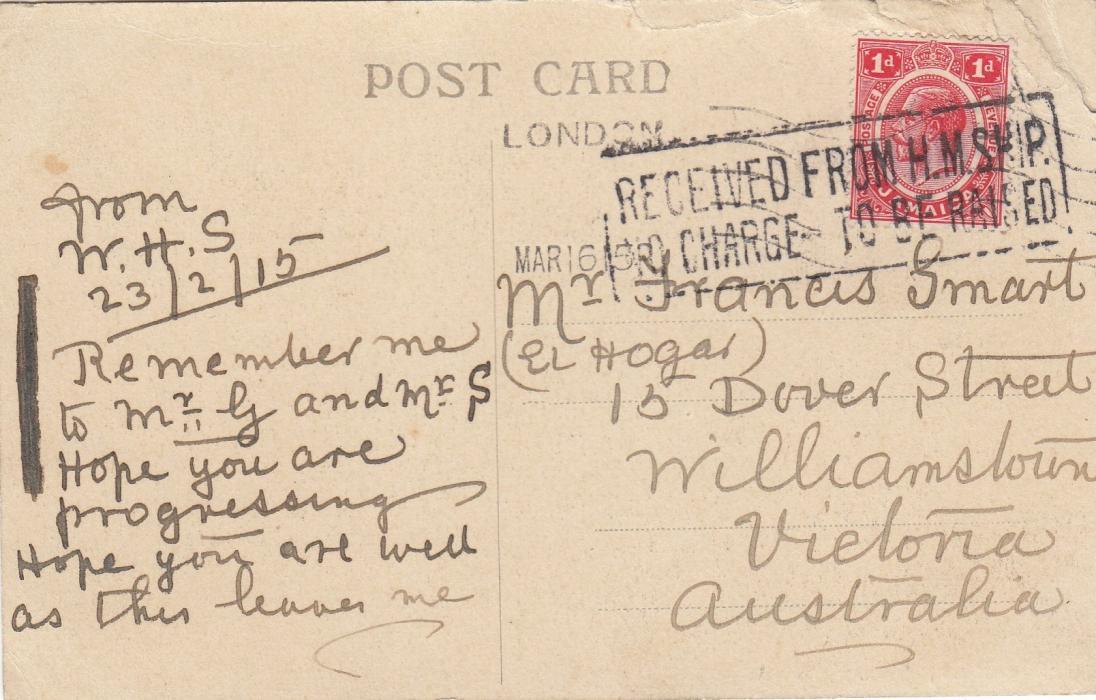 POST CARD
1d 1d
POSTAGE
JAMAICA
LONDON
MAR 16 15
RECEIVED FROM H.M. SHIP.
NO CHARGE TO BE RAISED
from
W. H. S
23/2/15
Remember me
to Mr G and Mr S
Hope you are
progressing
Hope you are well
as this leaves me
Mr Francis Smart
(EL Hogar)
15 Dover Street
Williamstown
Victoria
Australia